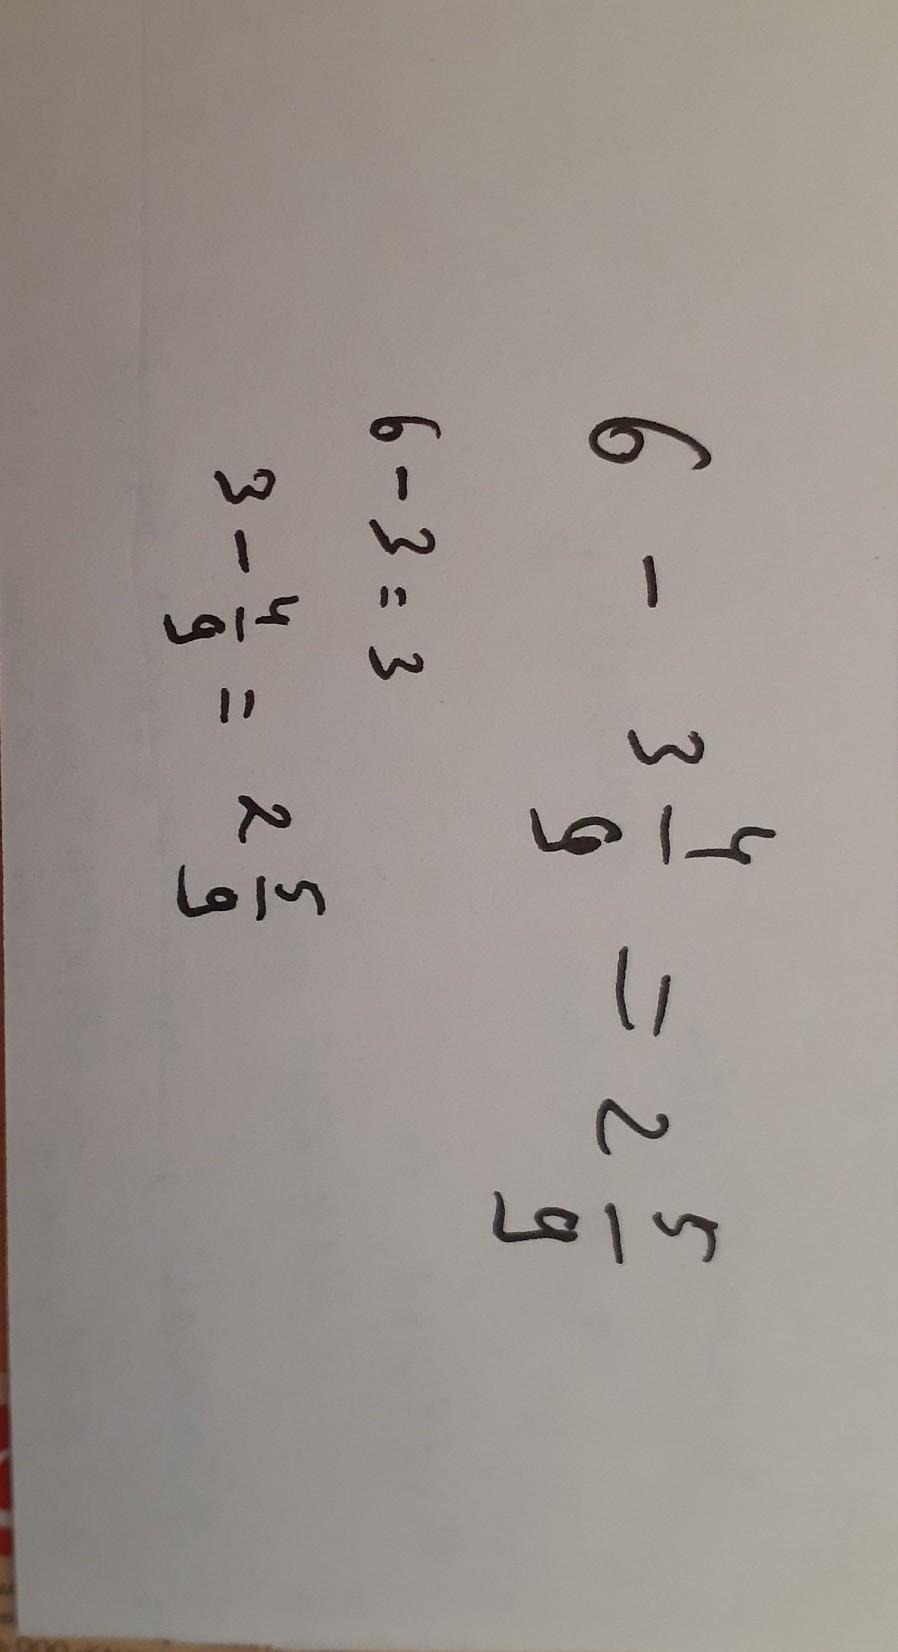 6 - 3 4/9 = 2 5/9
6 - 3 = 3
3 - 4/9 = 2 5/9